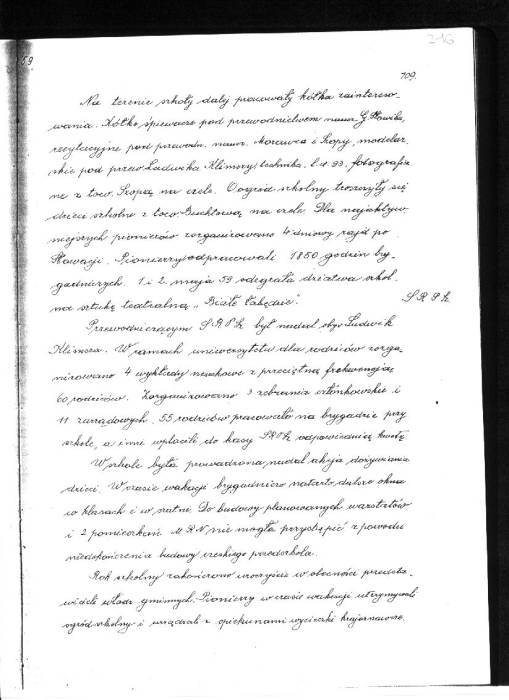 216
59
709.
Na terenie szkoły dalej pracowały kółka zaintereso-
wania. Kółko śpiewacze pod przewodnictwem naucz. G. Sławika,
recytacyjne pod przewodn. naucz. Morawca i Szopy, modelar-
skie pod przew. Ludwika Klimszy, technika, l. d. 93, fotograficz-
ne z tow. Szopą na czele. O ogród szkolny troszczyły się
dzieci szkolne z tow. Buchtową na czele. Dla najaktyw-
niejszych pionierów zorganizowano 4 dniowy rajd po
Słowacji. Pionierzy odpracowali 1850 godzin bry-
gadniczych. 1 i 2. maja 59 odegrała dziatwa szkol-
na sztukę teatralną „Białe łabędzie".
S R P Sz
Przewodniczącym S R P Sz był nadal obyw. Ludwik
Klimsza. W ramach uniwersytetu dla rodziców zorga-
nizowano 4 wykłady naukowe z przeciętną frekwencją
60 rodziców. Zorganizowano 3 zebrania członkowskie i
11 zarządowych. 55 rodziców pracowało na brygadzie przy
szkole, a inni wpłacili do kasy SRPSz odpowiednią kwotę.
W szkole była prowadzona nadal akcja dożywiania
dzieci. W czasie wakacji brygadniczo natarto dalsze okna
w klasach i w szatni. Do budowy planowanych warsztatów
i 2 pomieszkań M R N nie mogła przystąpić z powodu
niedokończenia budowy czeskiego przedszkola.
Rok szkolny zakończono uroczyście w obecności przedsta-
wicieli władz gminnych. Pionierzy w czasie wakacji utrzymywali
ogród szkolny i urządzali z opiekunami wycieczki krajoznawcze.